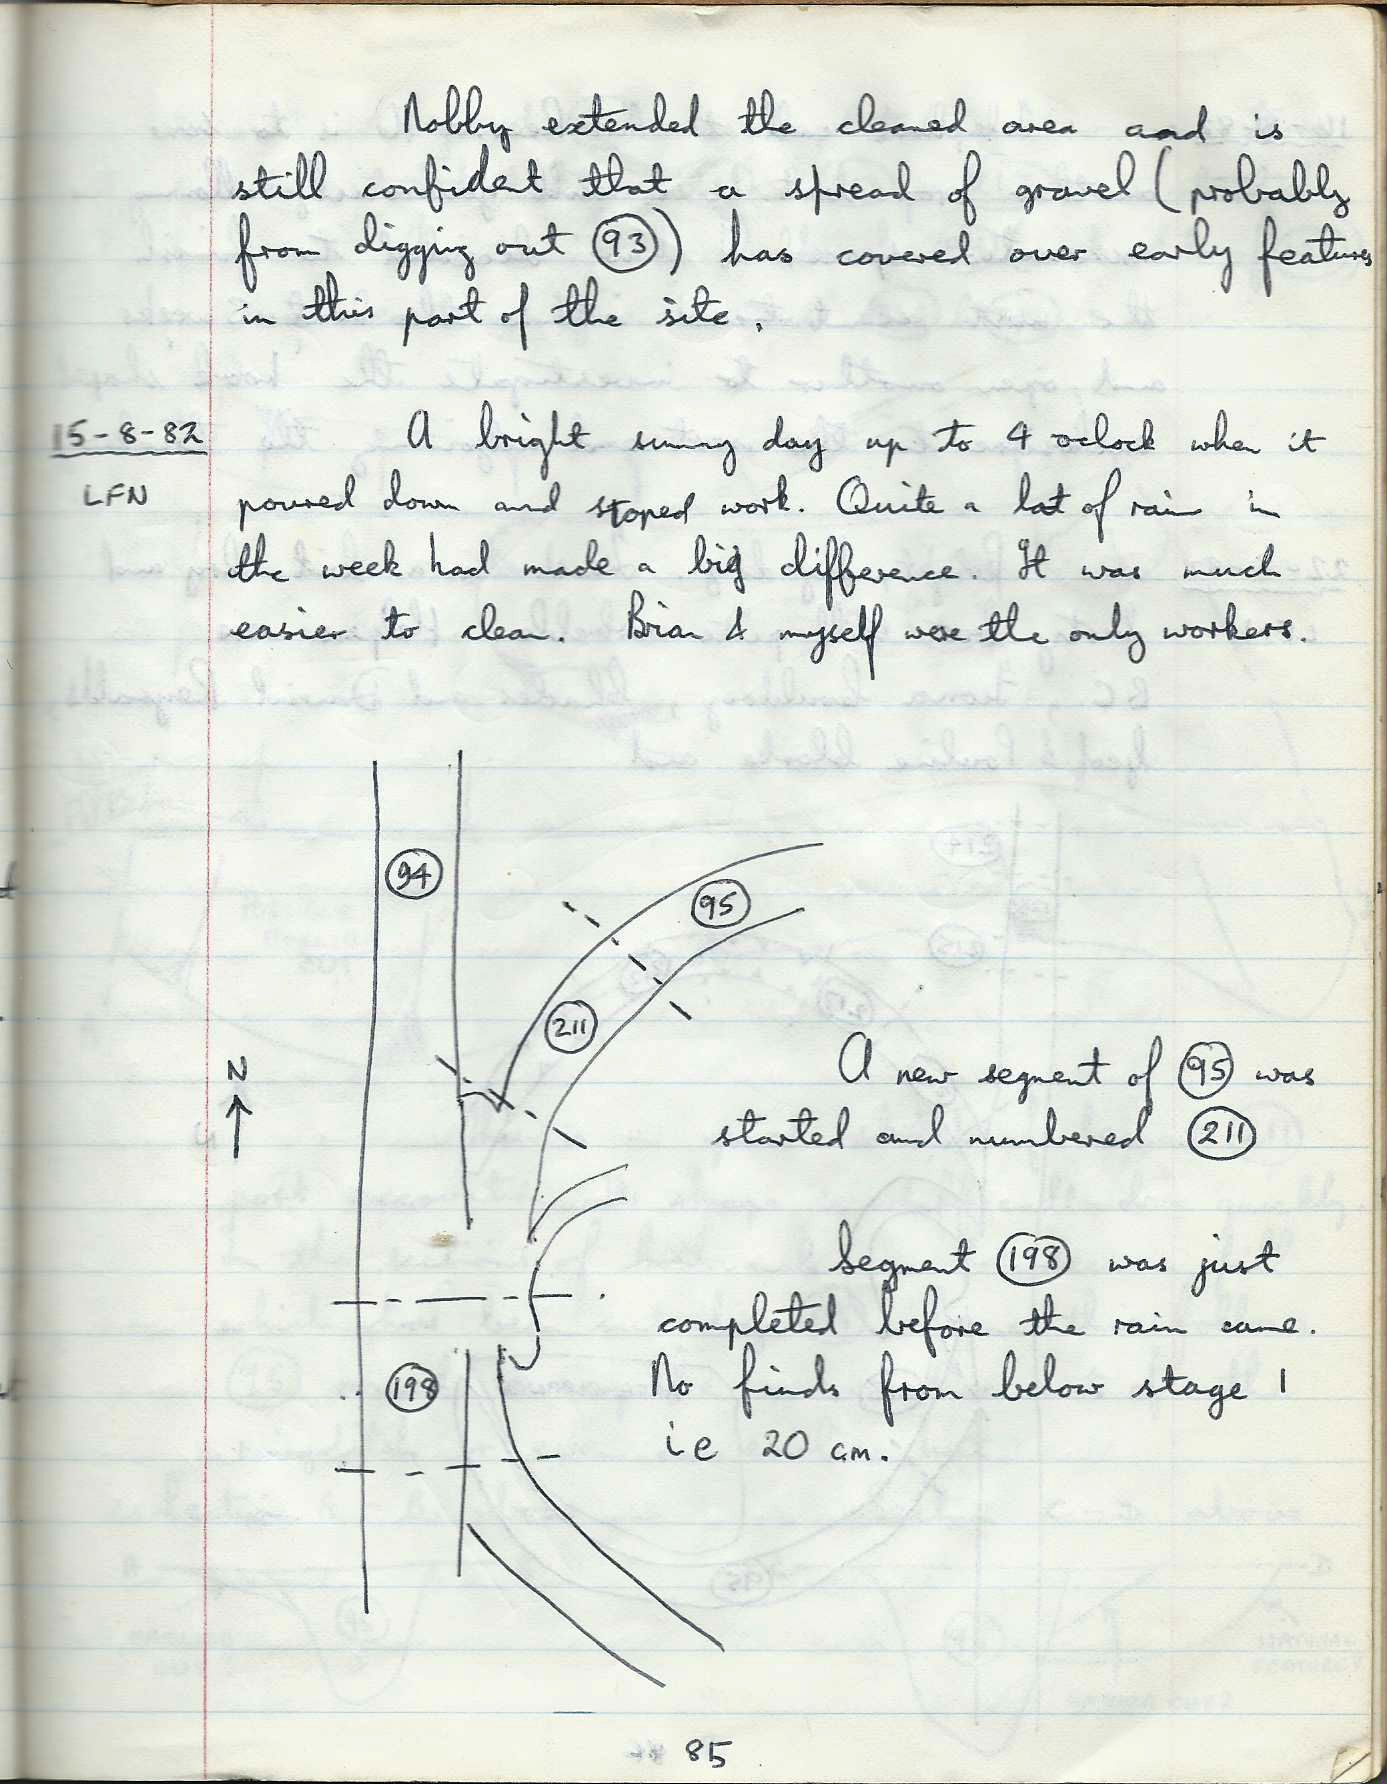 Nobby extended the cleaned area and is
still confident that a spread of gravel (probably
from digging out 93) has covered over early features
in this part of the site.
15-8-82 A bright sunny day up to 4 oclock when it
LFN poured down and stoped work. Quite a lot of rain in
the week had made a big difference. It was much
easier to clean. Brian & myself were the only workers.
94
95
211
N
A new segment of 95 was
started and numbered 211
Segment 198 was just
completed before the rain came.
198
No finds from below stage 1
ie 20 cm.
85